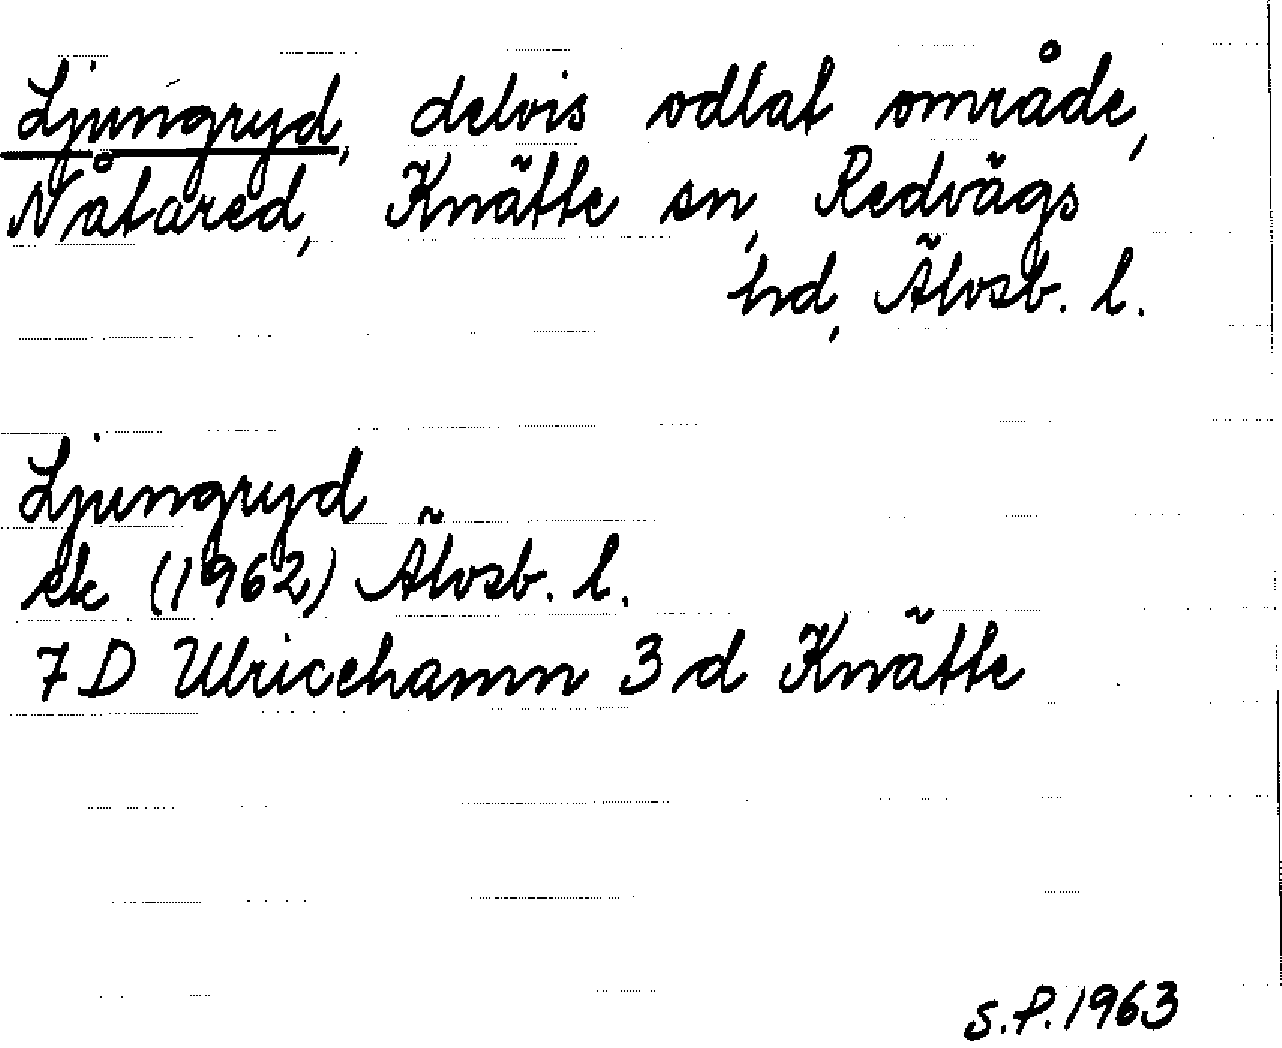 Ljungryd, delvis odlat område,
Nåtared, Knätte sn, Redvägs
hd, Älvsb. l.
Ljungryd
ek (1962) Älvsb. l.
7 D Ulricehamn 3 d Knätte
S.P. 1963